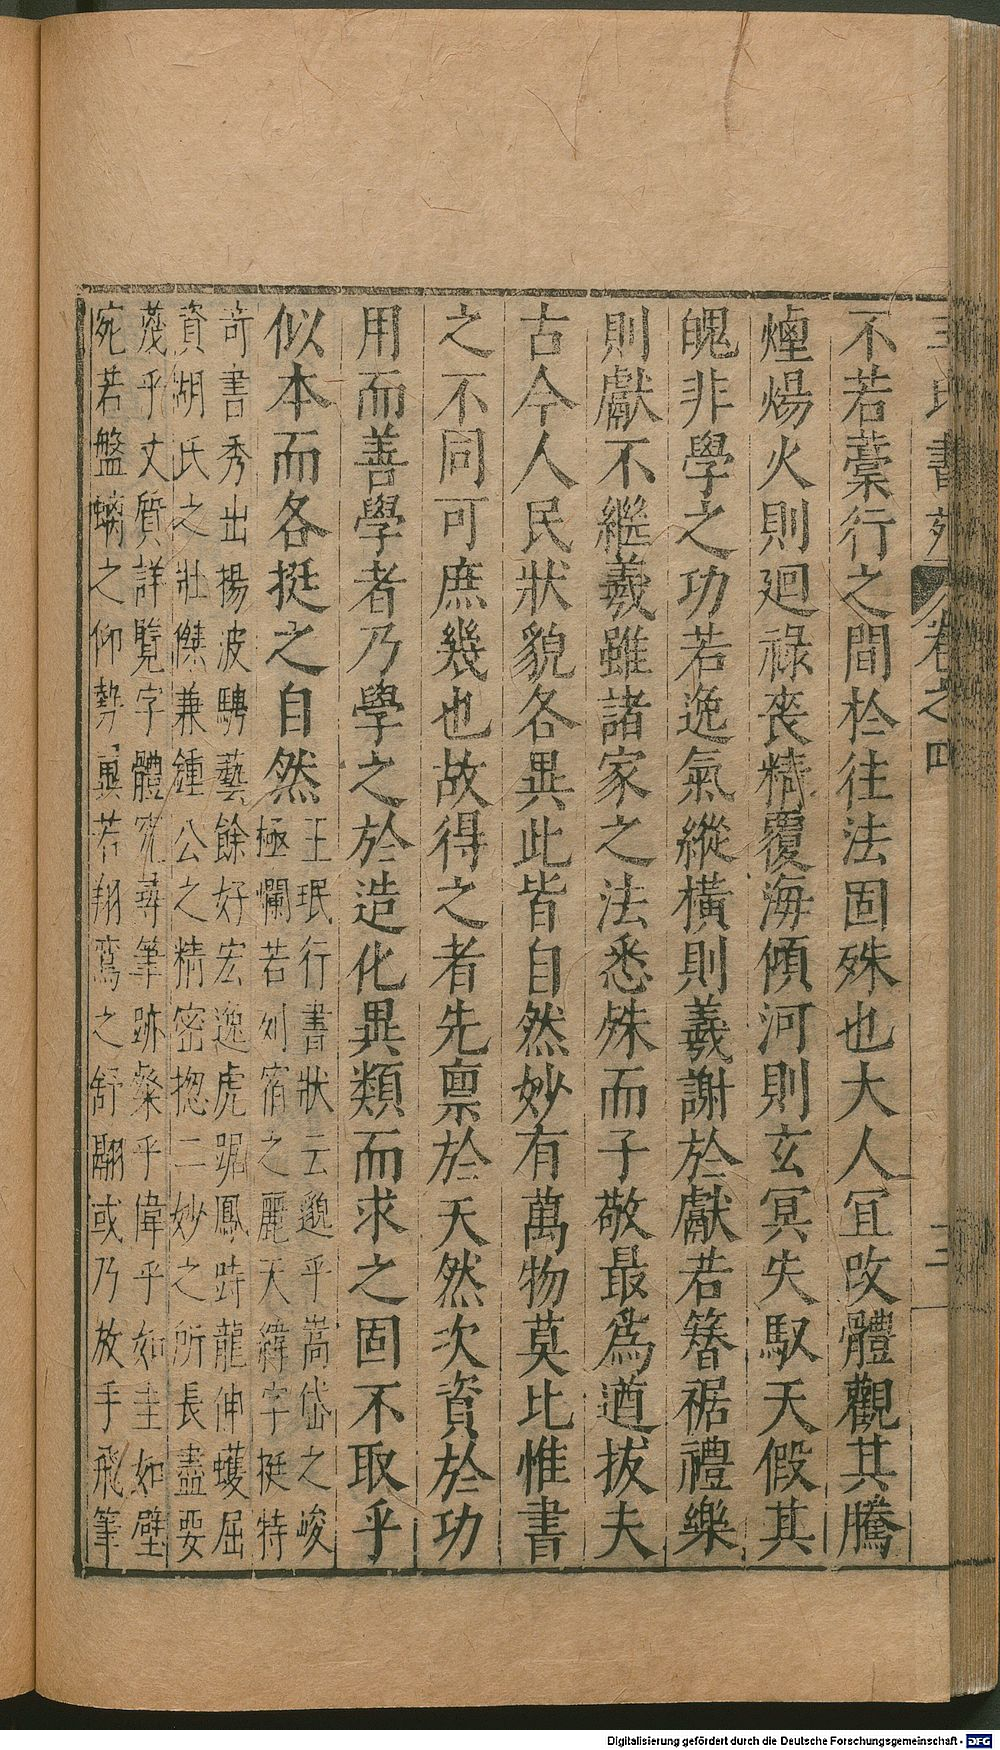 王氏書苑 卷之四 三
不若藁行之間於往法固殊也大人宜改體觀其騰
煙煬火則迴祿喪精覆海傾河則玄冥失馭天假其
魄非學之功若逸氣縱橫則羲謝於獻若簪裾禮樂
則獻不繼羲雖諸家之法悉殊而子敬最爲遒拔夫
古今人民狀貌各異此皆自然妙有萬物莫比惟書
之不同可庶幾也故得之者先禀於天然次資於功
用而善學者乃學之於造化異類而求之固不取乎
似本而各挺之自然
王珉行書狀云邈乎嵩岱之峻
極爛若列宿之麗天緯字挺特
奇書秀出揚波騁藝餘好宏逸虎踞鳳跱龍伸蠖屈
資湖氏之壯傑兼鍾公之精密揔二妙之所長盡要
茂乎丈質詳覽字體究尋筆跡粲乎偉乎如圭如壁
宛若盤螭之仰勢奐若翔鸞之舒翮或乃放手飛筆
Digitalisierung gefördert durch die Deutsche Forschungsgemeinschaft - DFG